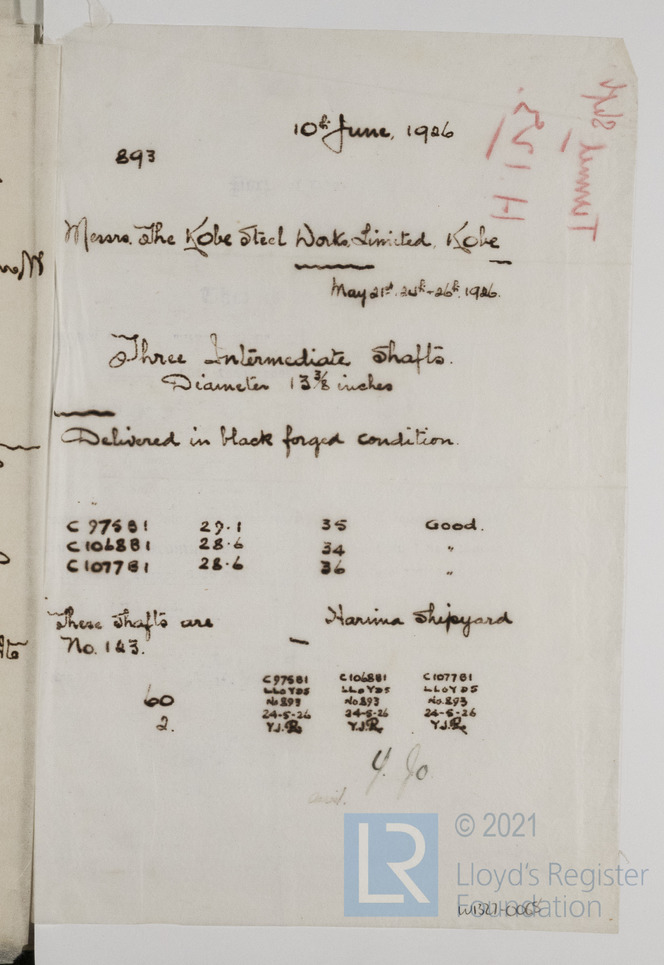 10th June, 1926
893
Messrs. The Kobe Steel Works, Limited, Kobe
May 21st. 24th - 26th. 1926.
Three Intermediate Shafts.
Diameter 13 3/8 inches
Delivered in black forged condition.
C 975B1 29.1 35 Good.
C 1068B1 28.6 34 "
C 1077B1 28.6 36 "
These shafts are Harima Shipyard
No. 123.
C975B1 C1068B1 C1077B1
LLOYDS LLOYDS LLOYDS
No 893 No 893 No 893
24-5-26 24-5-26 24-5-26
Y.J. Y.J. Y.J.
60
2.
Y. Jo
© 2021
LR
Lloyd's Register
Foundation
W1327-0065